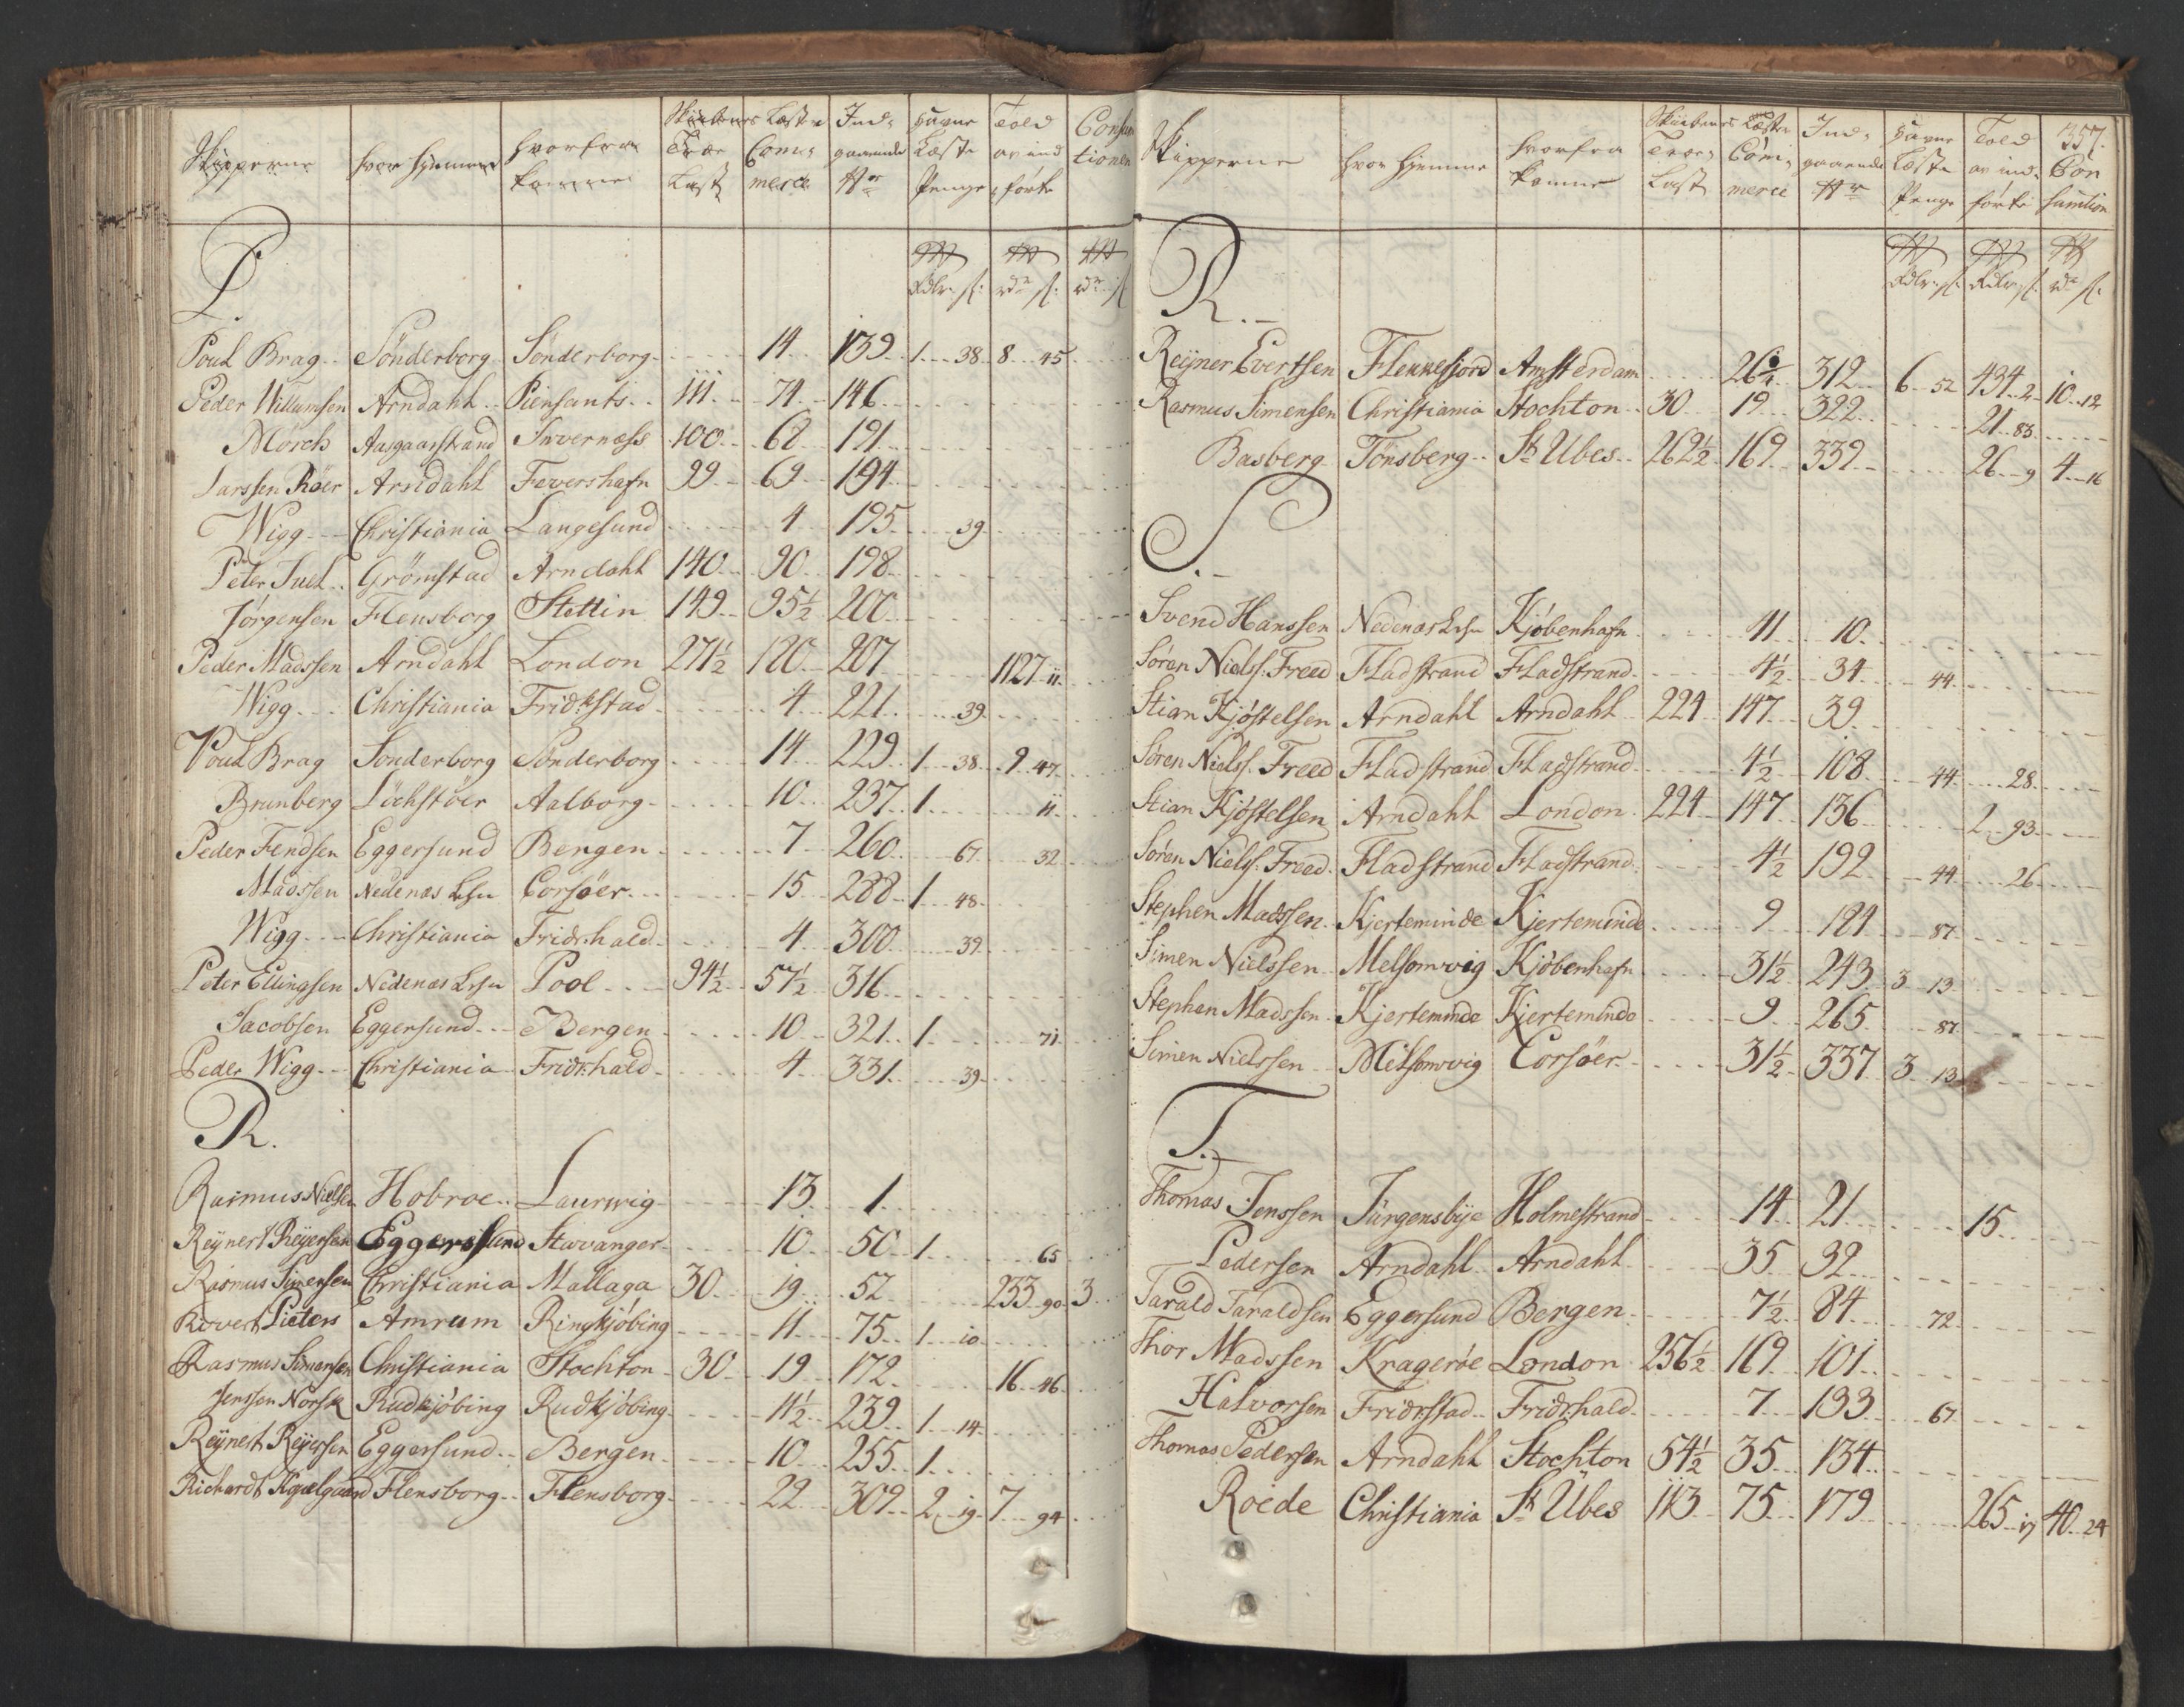 Skipperne | hvor hjemme | hvorfra kommer | Skibenes Læster Træ Læst | Commerce | Ind- gaaende No | Havne Læste Penge | Told av ind- førte | Consum tionen
P.
Rdlr. s. | rdr s. | rdr s.
Poul Brag | Sønderborg | Sønderborg | 14 | 139 | 1 38 | 8 45
Peder Willumsen | Arndahl | Piensants | 111 | 74 | 146
Morch | Aasgaarstrand | Invernæss | 100 | 68 | 191
Larssen Röer | Arndahl | Fewershafn | 99 | 69 | 194
Wigg | Christiania | Langesund | 4 | 195 | 39
Peter Juel | Grömstad | Arndahl | 140 | 90 | 198
Jörgensen | Flensborg | Stettin | 149 | 95½ | 200
Peder Madssen | Arndahl | London | 271½ | 180 | 207 | 1127 11
Wigg | Christiania | Fridrstad | 4 | 221 | 39
Poul Brag | Sonderborg | Sønderborg | 14 | 229 | 1 38 | 9 47
Brunberg | Löchstöer | Aalborg | 10 | 237 | 1 | 11
Peder Fendsen | Eggersund | Bergen | 7 | 260 | 67 | 32
Madssen | Nedenæs Lehn | Corsöer | 15 | 288 | 1 48
Wigg | Christiania | Fridrhald | 4 | 300 | 39
Peter Ellingsen | Nedenæs Lehn | Pool | 94½ | 57½ | 316
Jacobsen | Eggersund | Bergen | 10 | 321 | 1 | 71
Peder Wigg | Christiania | Fridrhald | 4 | 331 | 39
R.
Rasmus Nielsen | Hobroe | Laurwig | 13 | 1
Reÿnert Reÿersen | Eggersund | Stavanger | 10 | 50 | 1 | 65
Rasmus Simensen | Christiania | Mallaga | 30 | 19 | 52 | 233 90 | 3
Rovert Pieters | Amrum | Ringkjöbing | 11 | 75 | 1 10
Rasmus Simensen | Christiania | Stochton | 30 | 19 | 172 | 16 46
Jenssen Norsk | Rudkjöbing | Rudkjöbing | 11½ | 239 | 1 14
Reÿnert Reÿersen | Eggersund | Bergen | 10 | 255 | 1
Richardt Kgælgaard | Flensborg | Flensborg | 22 | 309 | 2 19 | 7 94
357.
Skipperne | hvor hjemme | hvorfra komme | Skibenes Læster Træe- Læst | Com- merce | Ind- gaaende No | Havne Læste Penge | Told av ind- førte | Con sumtion
R.
Rdlr. s. | Rdlr. s. | rd s.
Reÿner Evertsen | Flekkefiord | Amsterdam | 312 | 6 52 | 434 2 | 10 12
Rasmus Simensen | Christiania | Stochton | 30 | 19 | 322 | 21 83
Basberg | Tönsberg | St Ubes | 262½ | 169 | 339 | 26 9 | 4 16
S.
Svend Hanssen | Nedenæs Lehn | Kjöbenhafn | 11 | 10
Sören Niels. Freed | Fladstrand | Fladstrand | 4½ | 34 | 44
Stian Kjöstelsen | Arndahl | Arndahl | 224 | 147 | 39
Sören Niels. Freed | Fladstrand | Fladstrand | 4½ | 108 | 44 | 28
Stian Kjöstelsen | Arndahl | London | 224 | 147 | 136 | 2 93
Sören Niels. Freed | Fladstrand | Fladstrand | 4½ | 192 | 44 | 26
Stephen Madssen | Kjerteminde | Kjerteminde | 9 | 184 | 87
Simen Nielssen | Melsomvig | Kjöbenhafn | 31½ | 243 | 3 13
Stephen Madssen | Kjerteminde | Kjerteminde | 9 | 265 | 87
Simen Nielssen | Melsomvig | Corsöer | 31½ | 337 | 3 13
T.
Thomas Jenssen | Jürgensbÿe | Holmestrand | 14 | 21 | 15
Pedersen | Arndahl | Arndahl | 35 | 32
Tarald Taraldsen | Eggersund | Bergen | 7½ | 84 | 72
Thor Madssen | Krageröe | London | 256½ | 169 | 101
Halvorsen | Fridrstad | Fridrhald | 7 | 133 | 67
Thomas Pedersen | Arndahl | Stochton | 54½ | 35 | 134
Roede | Christiania | St Ubes | 113 | 75 | 179 | 265 17 | 40 24